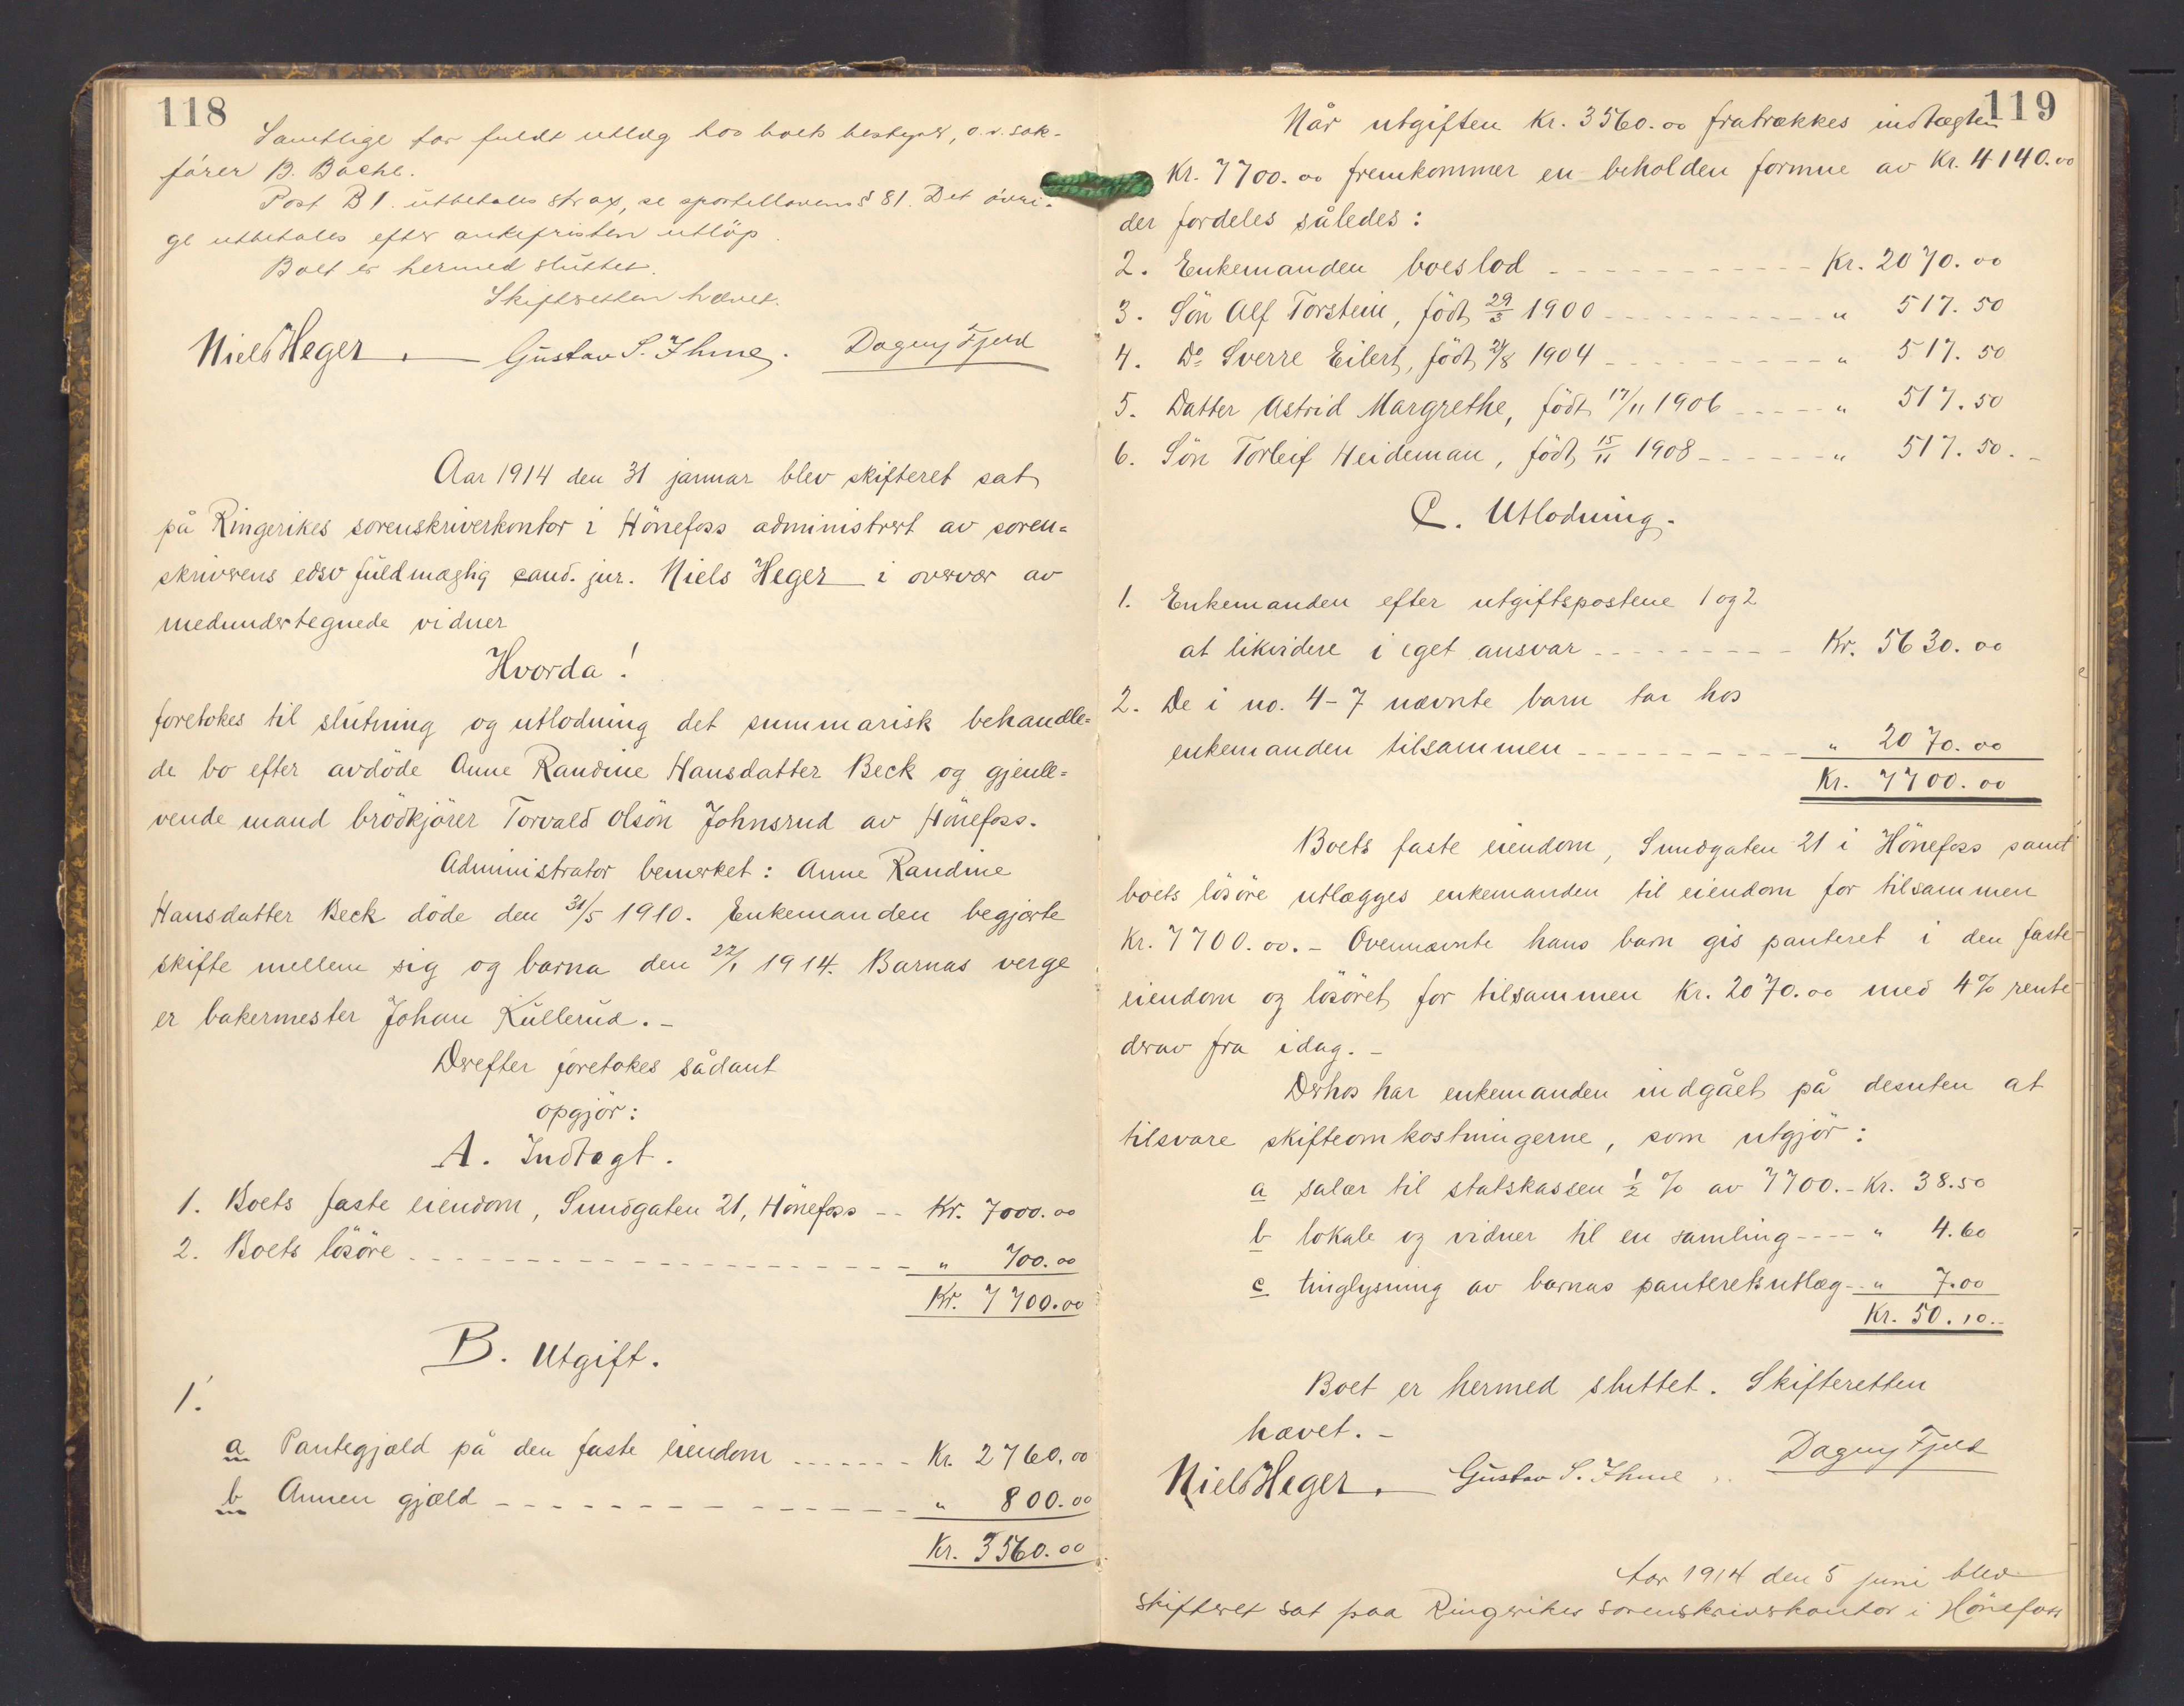 118
Samtlige tar fuldt utlæg hos boets bestyrer, o.r.sak-
fører B. Bache.
Post B 1. utbetales strax, se sportellovens § 81. Det övri-
ge utbetales efter ankefristen utlöp.
Boet er hermed sluttet.
Skifteretten hævet.
Niels Heger. Gustav S. Ihme. Dagny Fjeld
Aar 1914 den 31 januar blev skifteret sat
på Ringerikes sorenskriverkontor i Hönefoss administrert av soren=
skriverens edsv fuldmægtig cand. jur. Niels Heger i overvær av
medundertegnede vidner
Hvorda!
foretokes til slutning og utlodning det summarisk behandle=
de bo efter avdöde Anne Randine Hansdatter Beck og gjenle=
vende mand brödkjörer Torvald Olsön Johnsrud av Hönefoss.
Administrator bemerket: Anne Randine
Hansdatter Beck döde den 31/5 1910. Enkemanden begjærte
skifte mellem sig og barna den 22/1 1914. Barnas verge
er bakermester Johan Kullerud. -
Derefter foretokes sådant
opgjör:
A. Indtægt.
1. Boets faste eiendom, Sundgaten 21, Hönefoss -- Kr. 7000.00
2. Boets lösöre - - - - - " 700.00
Kr. 7700.00
B. Utgift.
1.
a Pantegjæld på den faste eiendom - - - - Kr. 2760.00
b Annen gjæld - - - - - " 800.00
Kr. 3560.00
119
Når utgiften Kr. 3560.00 fratrækkes indtægten
Kr. 7700.00 fremkommer en beholden formue av Kr. 4140.00
der fordeles således:
2. Enkemanden boeslod - - - - - Kr. 2070.00
3. Sön Alf Torstein, födt 29/3 1900 - - - - - " 517.50
4. Do Sverre Eilert, födt 21/8 1904 - - - - - " 517.50
5. Datter Astrid Margrethe, födt 17/11 1906 - - - - " 517.50
6. Sön Torleif Heideman, födt 15/11 1908 - - - - " 517.50.-
C. Utlodning.
1. Enkemanden efter utgiftspostene 1 og 2
at likvidere i eget ansvar - - - - - Kr. 5630.00
2. De i no. 4-7 nævnte barn tar hos
enkemanden tilsammen - - - - - " 2070.00
Kr. 7700.00
Boets faste eiendom, Sundgaten 21 i Hönefoss samt
boets lösöre utlægges enkemanden til eiendom for tilsammen
Kr. 7700.00. - Ovennævnte hans barn gis panteret i den faste
eiendom og lösöret for tilsammen Kr. 2070.00 med 4% rente
derav fra idag. -
Derhos har enkemanden indgået på desuten at
tilsvare skifteomkostningerne, som utgjör:
a salær til statskassen 1/2 % av 7700.- Kr. 38.50
b lokale og vidner til en samling ---- " 4.60
c tinglysning av barnas panteretsutlæg -- " 7.00
Kr. 50.10.-
Boet er hermed sluttet. Skifteretten
hævet. -
Niels Heger. Gustav S. Ihme. Dagny Fjeld
Aar 1914 den 5 juni blev
skifteret sat paa Ringerikes sorenskriverkontor i Hönefoss